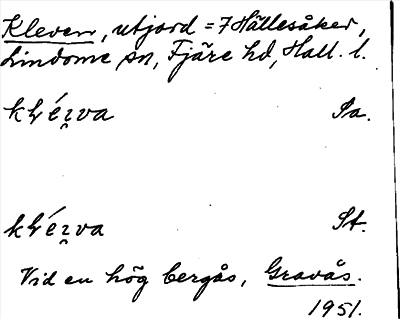 Kleven, utjord = 7 Hällesåker,
Lindome sn, Fjäre hd, Hall. l.
Sa.
St.
Vid en hög bergås, Gravås.
1951.